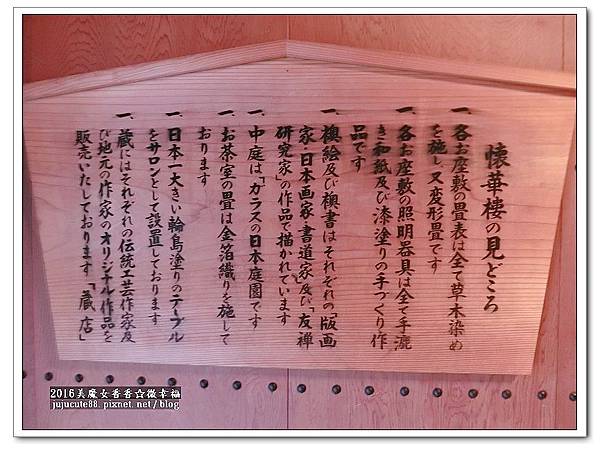 懐華樓の見どころ
一、各お座敷の畳表は全て草木染め
を施し又変形畳です
一、各お座敷の照明器具は全て手漉
き和紙及び漆塗りの手づくり作
品です
一、襖絵及び襖書はそれぞれの「版画
家・日本画家・書道家及び「友禅
研究家」の作品で描かれています
一、中庭は「ガラスの日本庭園です
一、お茶室の畳は金箔織りを施して
おります
一、日本一大きい輪島塗りのテーブル
をサロンとして設置しております
一、蔵にはそれぞれの伝統工芸作家及
び地元の作家のオリジナル作品を
販売いたしております「蔵店」
2016美魔女香香☆微幸福
jujucute88.pixnet.net/blog